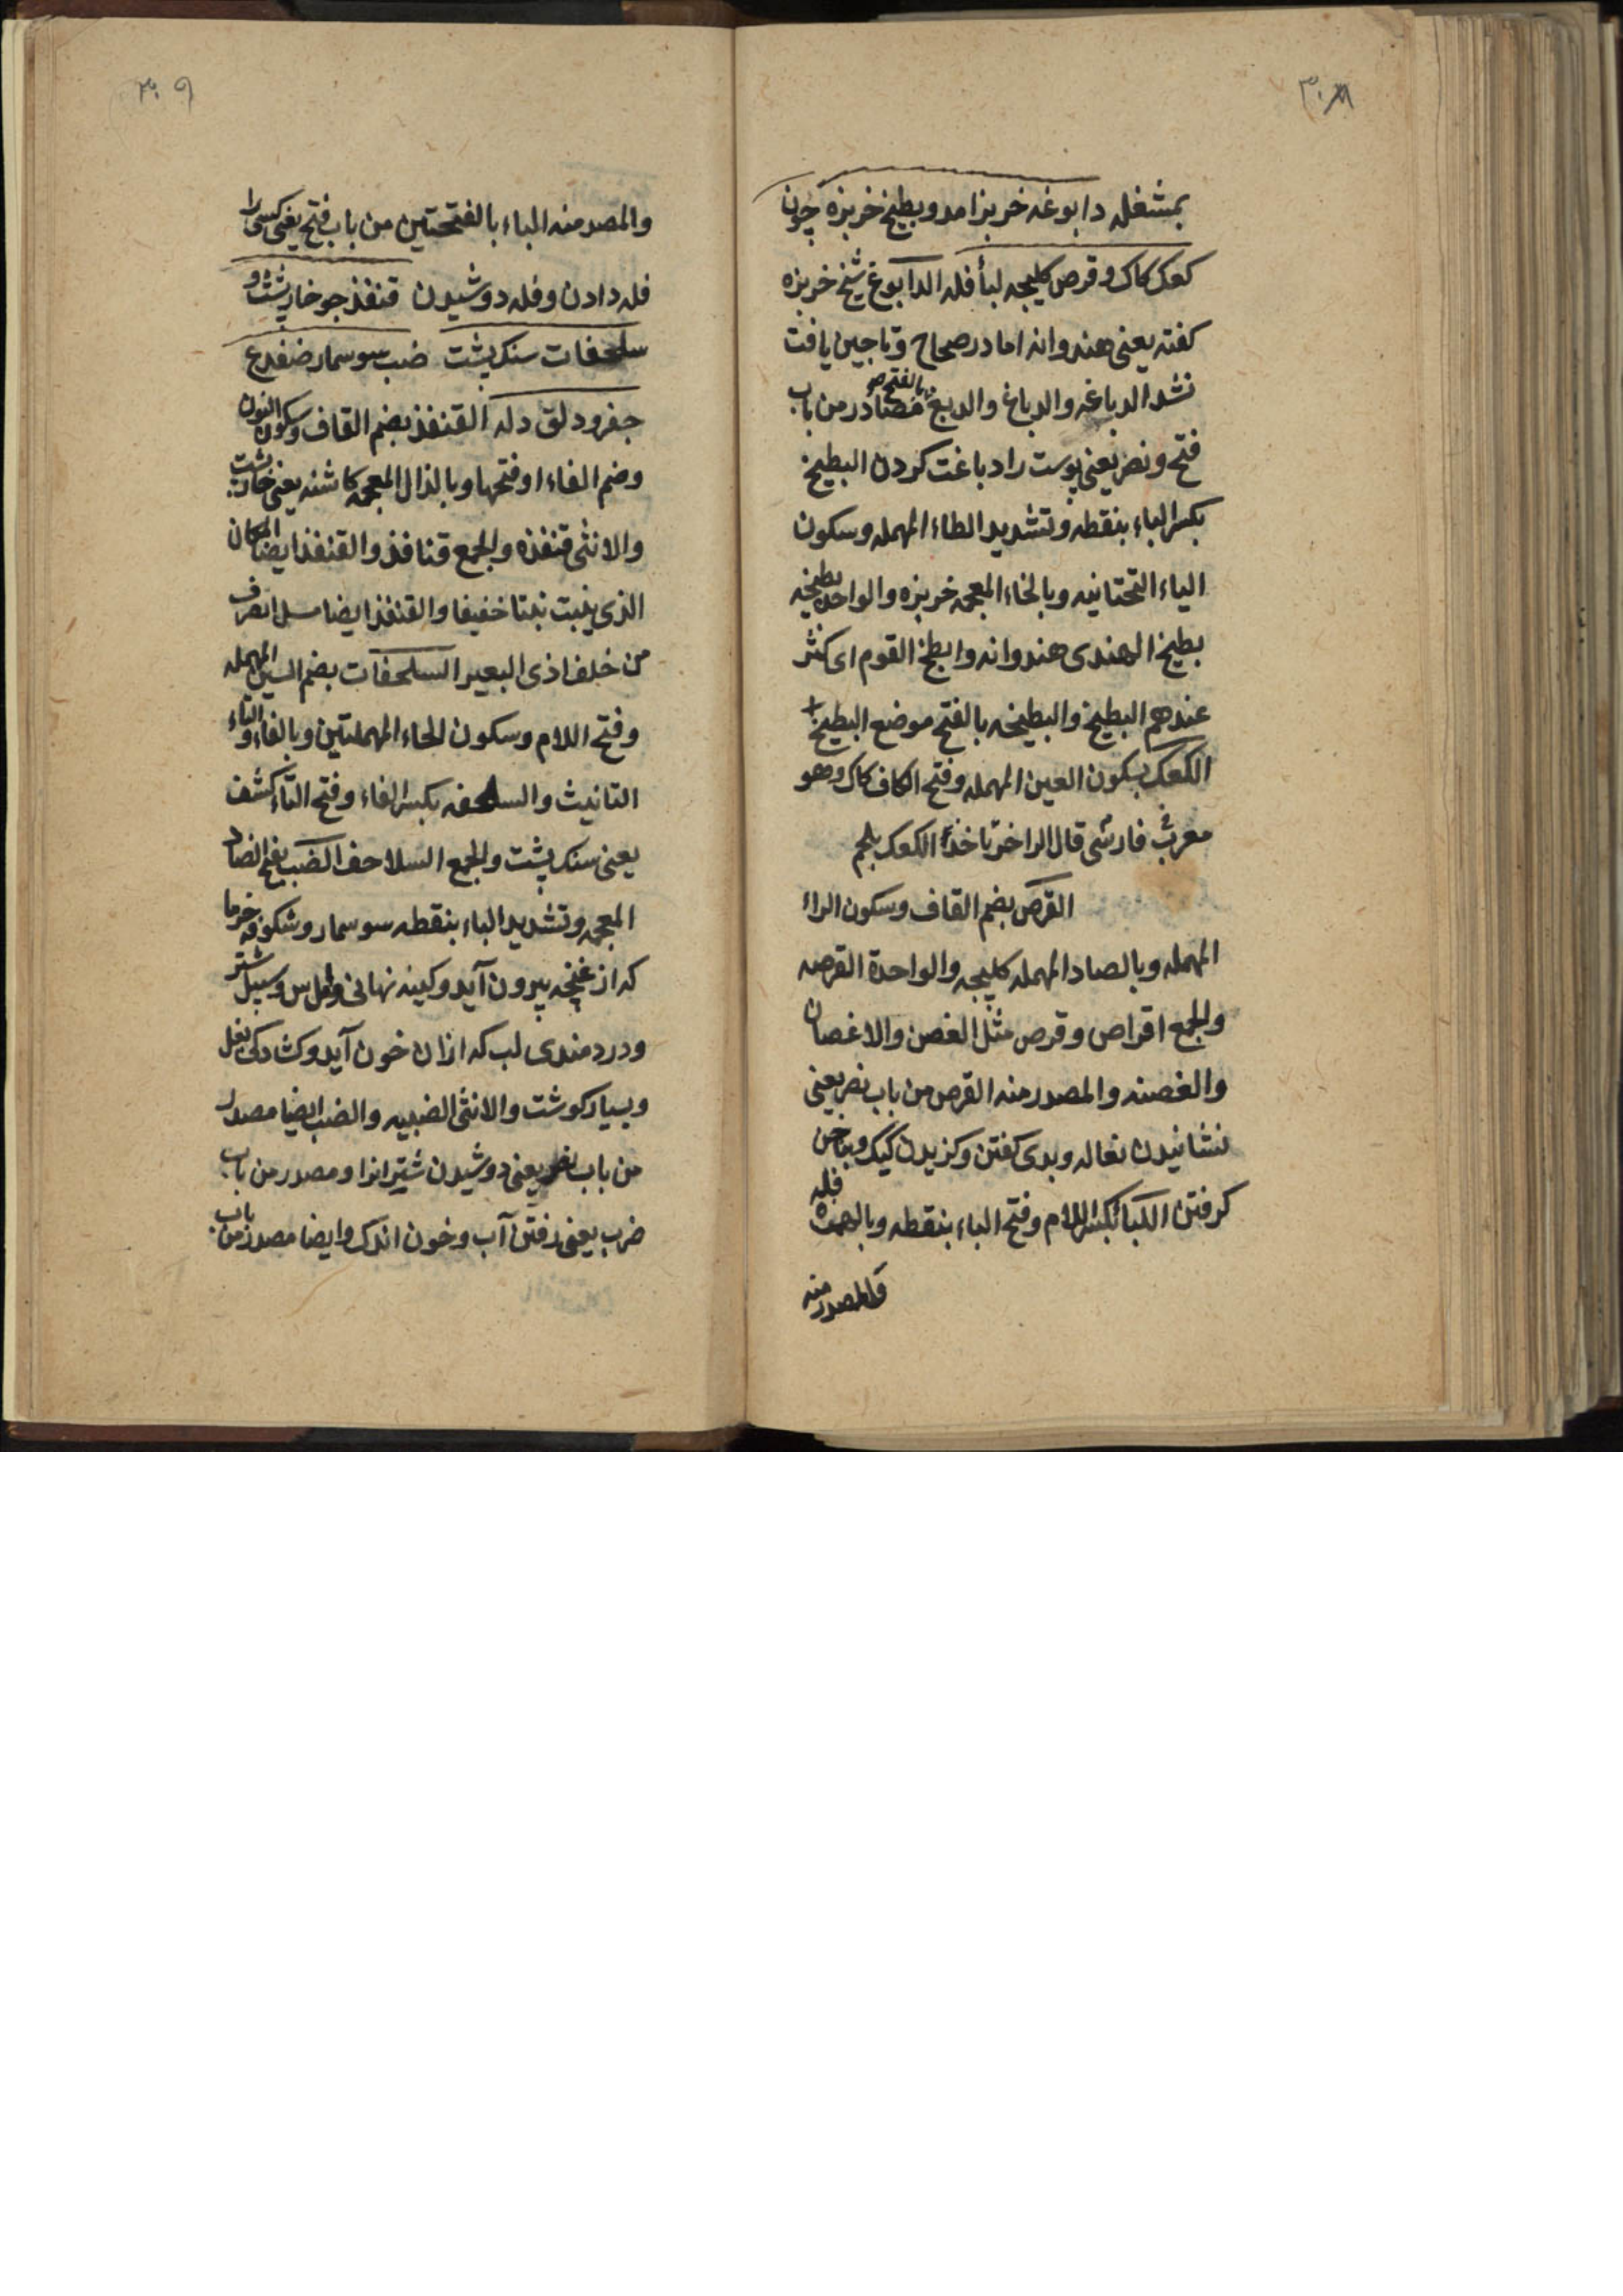 ٣٠٨
بمشغله دابوغه خربزا مدو بطیخ خربزه چون
کعک کاک و قرص کلیجه لبأ فله الدابوغ شیخ خربزه
کفته یعنی هندوانه اما در صحاح و تاجین یافت
نشد الدباغه والدباغ والدبغ بالفتح مصادر من باب
فتح و نصر یعنی پوست را دباغت کردن البطیخ
بکسر الباء بنقطه و تشدید الطاء المهمله و سکون
الیاء التحتانیه و بالخاء المعجمه خربزه والواحده بطیخه
بطیخ الهندی هندوانه وابطخ القوم ای کثر
عندهم البطیخ والبطیخه بالفتح موضع البطیخ
الکعک بسکون العین المهمله و فتح الکاف کاک وهو
معرب فارسی قال الراخر یا خذا الکعک بلجم
القرص بضم القاف و سکون الراء
المهمله و بالصاد المهمله کلیجه والواحدة القرصه
والجمع اقراص و قرص مثل الغصن والاغصان
والغصنه والمصدر منه القرص من باب نصر یعنی
نشانیدن نغاله و بدی کفتن و کزیدن کیک و بناخن
کرفتن اللبا بکسر اللام و فتح الباء بنقطه و بالهمزه فله
والمصدر منه
٣٠٩
والمصدر منه الباء بالفتحتین من باب فتح یعنی کسی را
فله دادن و فله دوشیدن قنفذ جو خارپشت و
سلحفات سنک پشت ضب سوسمار ضفدع
جغر و دلق دله القنفذ بضم القاف و سکون النون
وضم الفاء او فتحها و بالذال المعجمه کاشنه یعنی خارپشت
والانثی قنفذه والجمع قنافذ والقنفذ ایضا المکان
الذی ینبت نبتا خفیفا والقنفذ ایضا مسل العرق
من خلف اذی البعیر السلحفات بضم السین المهمله
و فتح اللام و سکون الحاء المهملتین و بالفاء والتاء
التانیث والسلحفه بکسر الفاء و فتح التاء کشف
یعنی سنک پشت والجمع السلاحف الضب بفتح الضاد
المعجمه و تشدید الباء بنقطه سوسمار و شکوفه خرما
که از غنچه بیرون آید و کینه نهانی و سبیل شتر
و دردمندی لب که ازان خون آید و کشادکی بغل
و بسیار کوشت والانثی الضبیه والضب ایضا مصدر
من باب نصر یعنی دوشیدن شتر انرا و مصدر من باب
ضرب یعنی رفتن آب و خون اندک و ایضا مصدر من باب